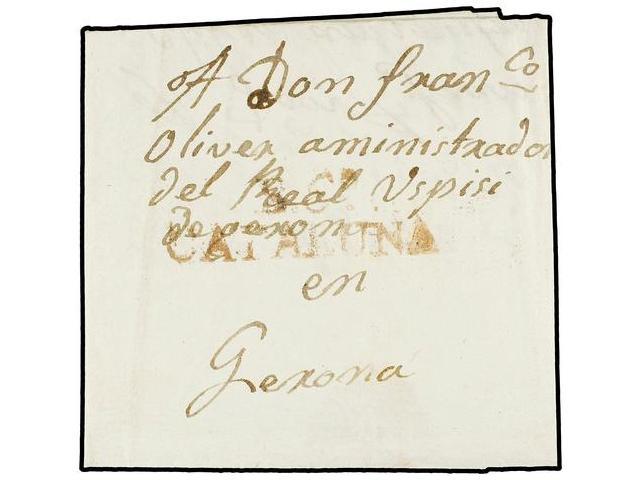 A Don Fran^co
Oliver aministrador
del Real Uspisi
de gerona
CATALUÑA
en
Gerona